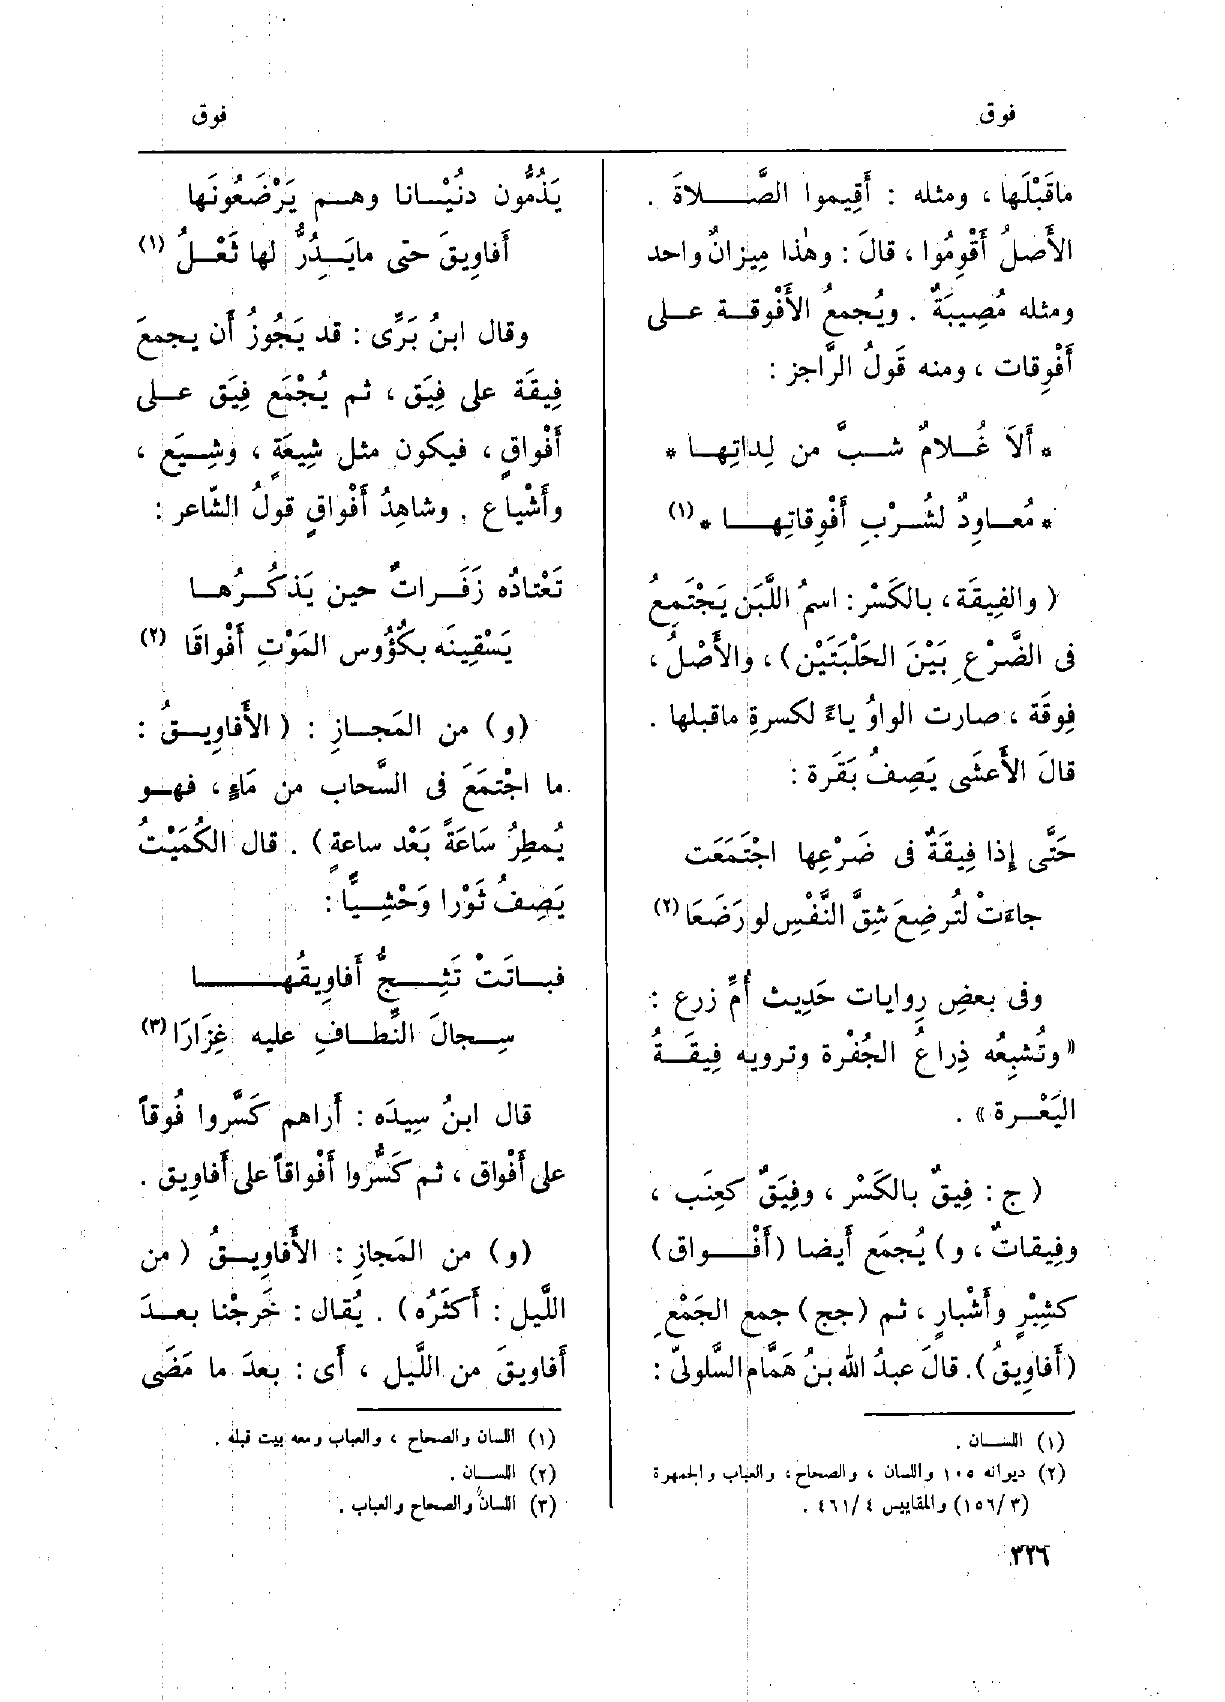 فوق
فوق
ماقَبْلَها ، ومثله : أَقِيموا الصَّلاةَ .
الأَصلُ أَقْوِمُوا ، قالَ : وهٰذا مِيزانٌ واحد
ومثله مُصِيبَةٌ . ويُجمعُ الأَفْوِقة على
أَفْوِقات ، ومنه قَولُ الرَّاجز :
* أَلَا غُلامٌ شبَّ من لِداتِها *
* مُعاوِدٌ لشُرْبِ أَفْوِقاتِها * (١)
( والفِيقَة ، بالكَسْر : اسمُ اللَّبَن يَجْتَمِعُ
فى الضَّرْعِ بَيْنَ الحَلْبَتَيْن ) ، والأَصْلُ ،
فِوقَة ، صارت الواوُ ياءً لكسرةِ ماقبلها .
قالَ الأَعشَى يَصِفُ بَقَرة :
حَتَّى إِذا فِيقَةٌ فى ضَرْعِها اجْتَمَعَت
جاءَتْ لتُرضِعَ شِقَّ النَّفْسِ لو رَضَعَا (٢)
وفى بعضِ رِوايات حَدِيث أُمِّ زرع :
« وتُشبِعُه ذِراعُ الجُفْرة وترويه فِيقَةُ
اليَعْرة » .
( ج : فِيقٌ بالكَسْر ، وفِيَقٌ كعِنَب ،
وفِيقاتٌ ، و) يُجمَع أَيضا (أَفْواق)
كشِبْرٍ وأَشْبارٍ ، ثم (جج) جمع الجَمْعِ
(أَفاوِيقُ). قالَ عبدُ الله بنُ هَمَّام السَّلولىّ :
(١) اللسان .
(٢) ديوانه ١٠٥ واللسان ، والصحاح ، والعباب والجمهرة
(٣/١٥٦) والمقاييس ٤/٤٦١ .
يَذُمُّون دنُيْانا وهم يَرْضَعُونَها
أَفاوِيقَ حتى مايَدِرُّ لها ثَعْلُ (١)
وقال ابنُ بَرِّى : قد يَجُوزُ أَن يجمعَ
فِيقَة على فِيَق ، ثم يُجْمَع فِيَق على
أَفْواقٍ ، فيكون مثل شِيعَةٍ ، وشِيَع ،
وأَشْياع . وشاهِدُ أَفْواقٍ قولُ الشّاعر :
تَعْتادُه زَفَراتٌ حين يَذكُرُها
يَسْقِينَه بكُؤُوس المَوْتِ أَفْواقَا (٢)
(و) من المَجازِ : ( الأَفاوِيقُ :
ما اجْتمَعَ فى السَّحاب من مَاءٍ ، فهو
يُمطِرُ سَاعَةً بَعْد ساعةٍ ) . قال الكُمَيْتُ
يَصِفُ ثَوْرا وَحْشِيًّا :
فباتَتْ تَثِجُّ أَفاوِيقُها
سِجالَ النِّطافِ عليه غِزَارَا (٣)
قال ابنُ سِيدَه : أَراهم كَسَّروا فُوقاً
على أَفْواق ، ثم كَسَّروا أَفْواقاً على أَفاوِيق .
(و) من المَجازِ : الأَفاوِيقُ ( من
اللَّيل : أَكثَرُه ) . يُقال : خَرجْنا بعدَ
أَفاويقَ من اللَّيل ، أَى : بعدَ ما مَضَى
(١) اللسان والصحاح ، والعباب ومعه بيت قبله .
(٢) اللسان .
(٣) اللسان والصحاح والعباب .
٣٢٦